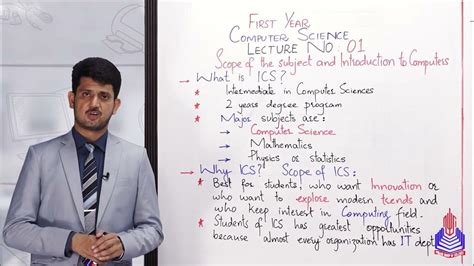 First Year
Computer Science
Lecture No. 01
Scope of the subject and Introduction to Computers
→ What is ICS?
* Intermediate in Computer Sciences
* 2 years degree program
* Major subjects are:
→ Computer Science
→ Mathematics
→ Physics or statistics
→ Why ICS? Scope of ICS:
* Best for students who want Innovation or
who want to explore modern trends and
who keep interest in Computing field.
* Students of ICS has greatest opportunities
because almost every organization has IT dept.